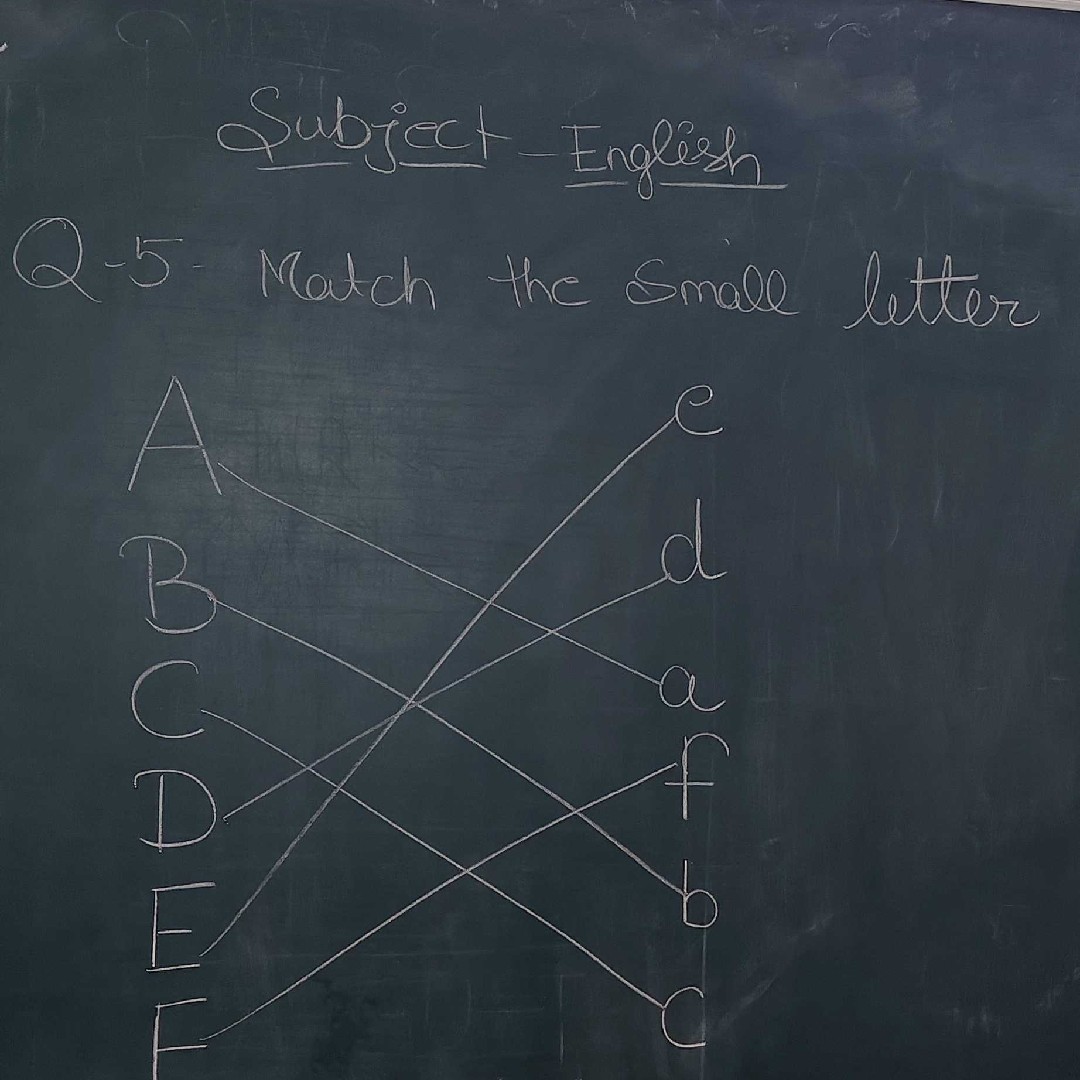 Subject - English
Q-5- Match the small letter
A e
B d
C a
D f
E b
F c